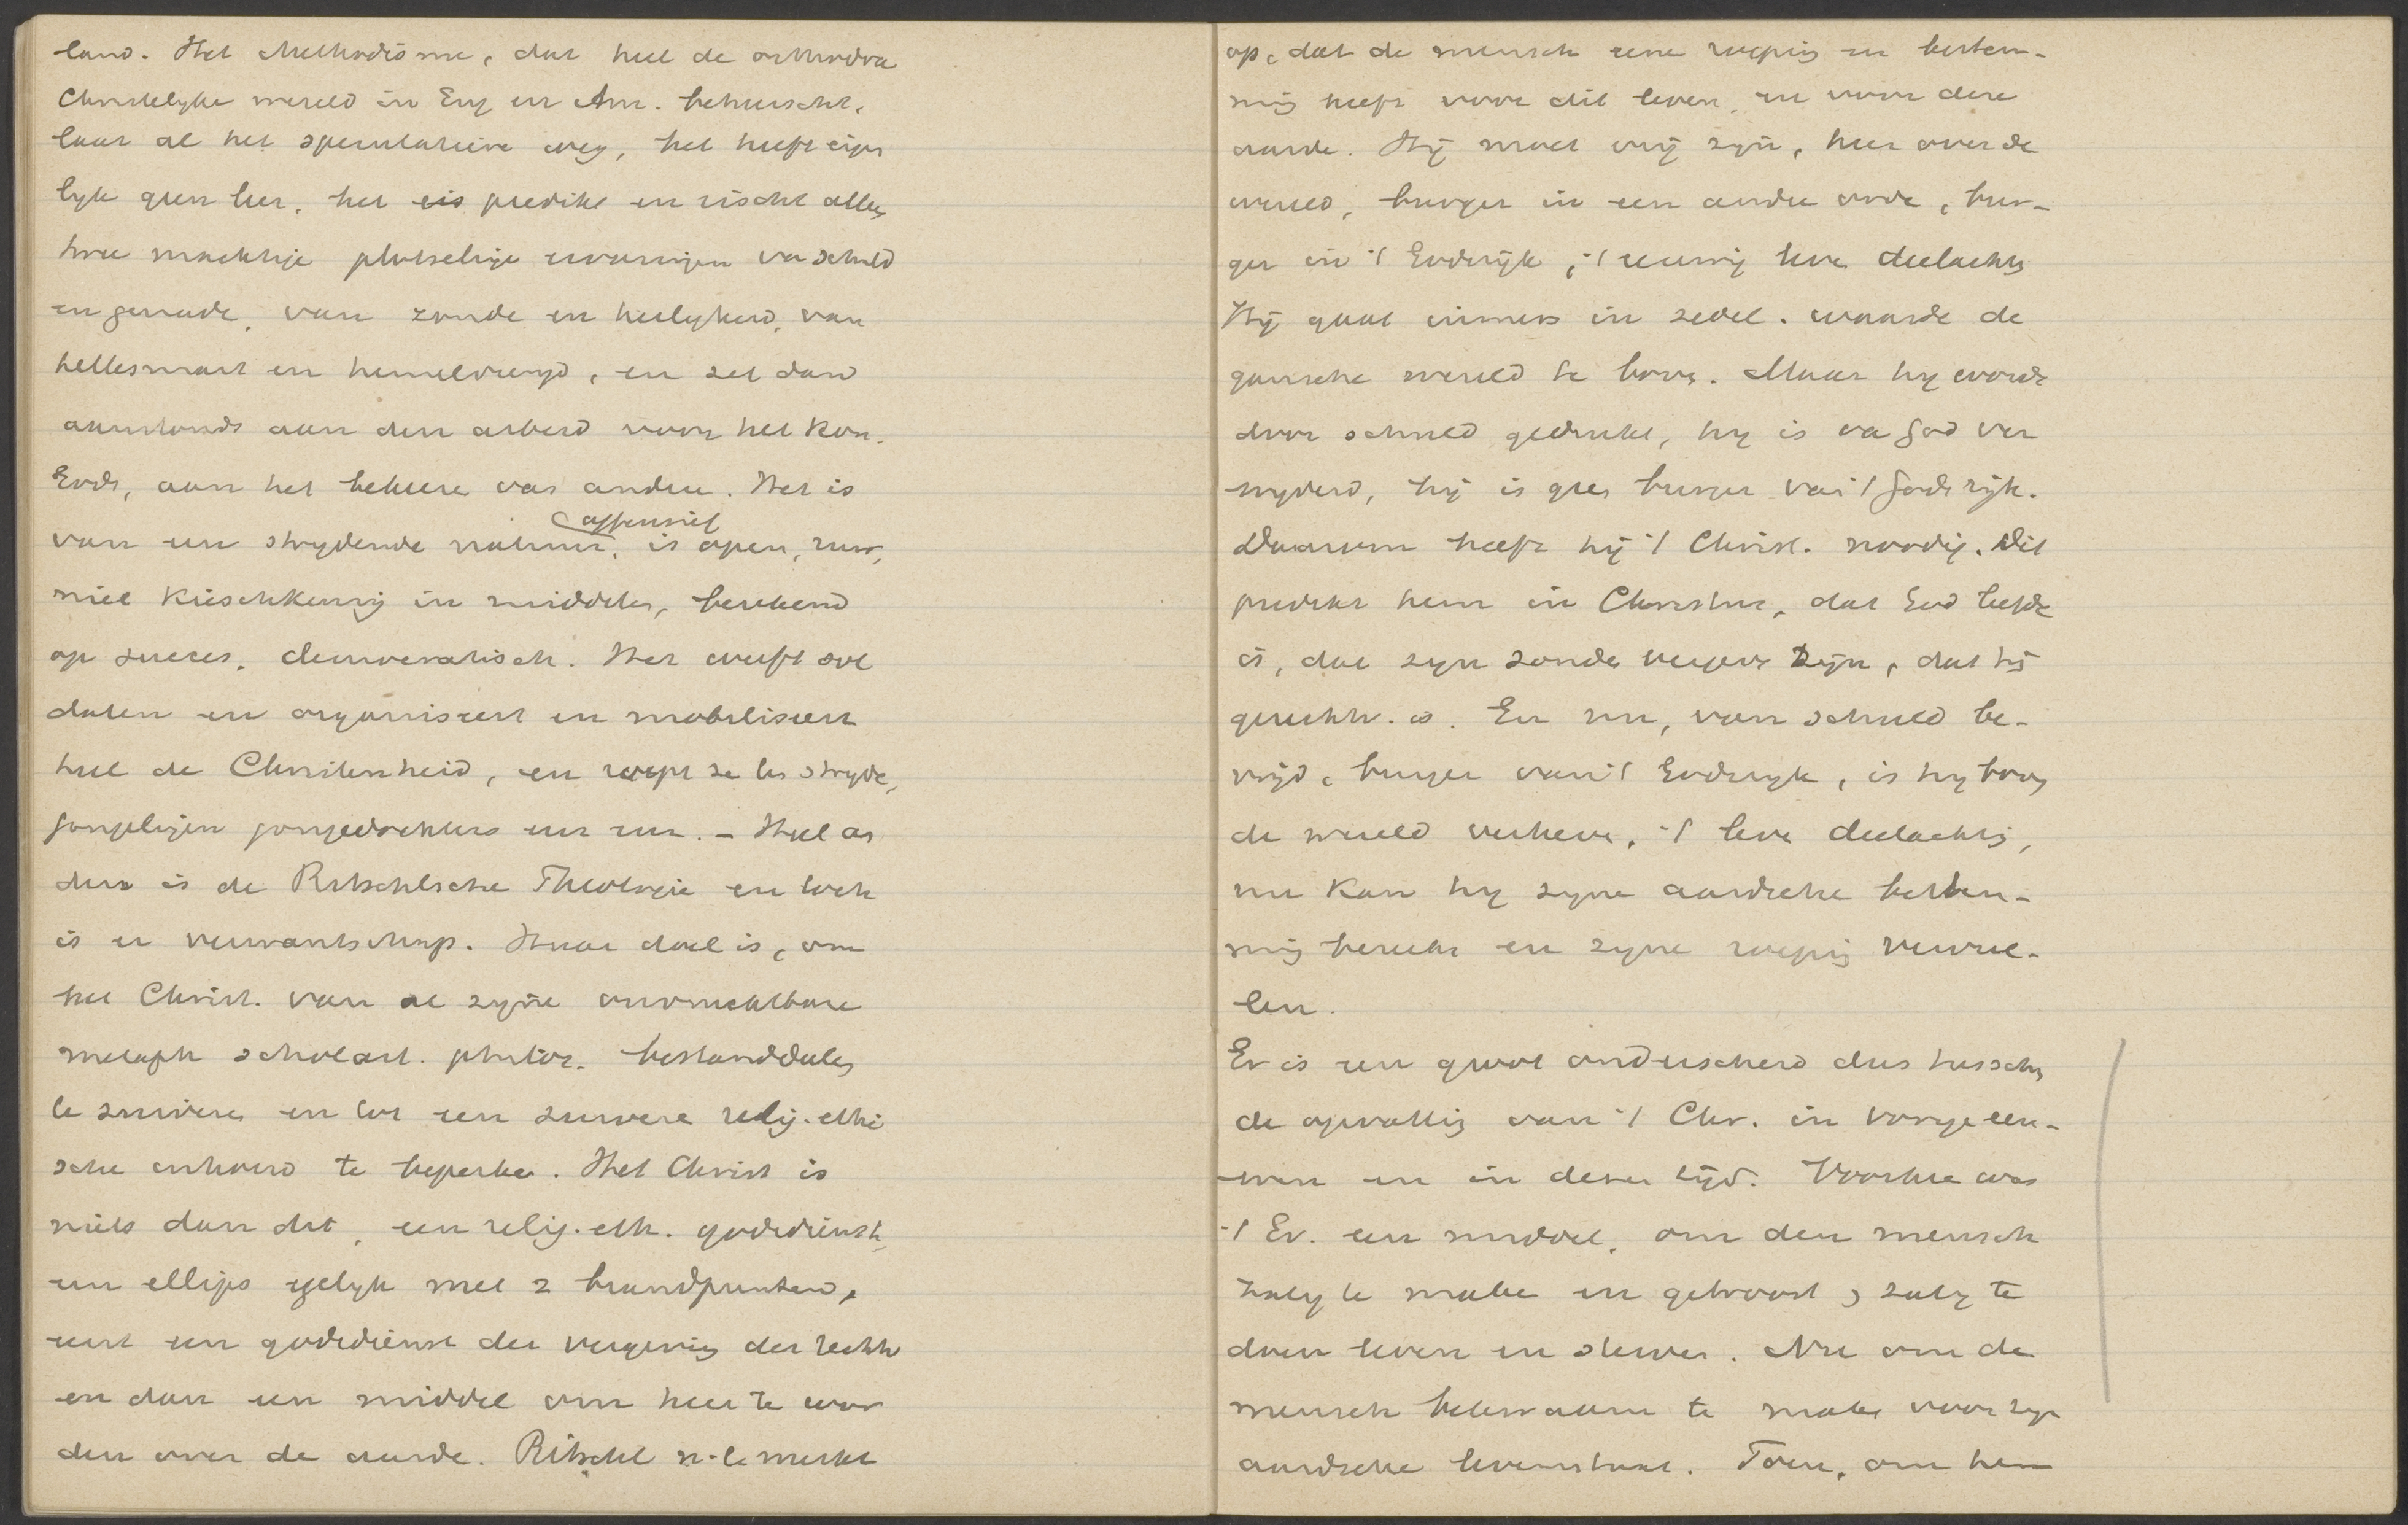 land. Het Methodisme, dat heel de orthodoxe
Christelyke wereld in Eng en Am. beheerscht,
laat al het speculatieve weg, het heeft eigen
lyk geen leer, het eis predikt en eischt alleen
twee machtige plotselinge ervaringen van schuld
en genade, van zonde en heilykheid, van
hellesmart en hemelvreugd, en zet dan
aanstonds aan den arbeid voor het Kon.
Gods, aan het bekeere van andere. Het is
offensief
van een strydende natuur, is open, ruw,
niet kieschkeurig in middelen, berekend
op succes, democratisch. Het werft sol
daten en organiseert en mobiliseert
heel de Christenheid, en roept ze ten stryde,
jongelingen jongedochters enz enz. - Heel an
ders is de Ritschlsche Theologie en toch
is er verwantschap. Haar doel is, om
het Christ. van al zyne onvruchtbare
metaph scholast. philos. bestanddeelen
te zuiveren en tot een zuivere relig. ethi
sche inhoud te beperken. Het Christ is
niets dan dit, een relig. eth. godsdienst,
een ellips gelyk met 2 brandpunten,
eerst een godsdienst der vergeving der rechtv
en dan een middel om heer te wor
den over de aarde. Ritschl n.l. merkt
op, dat de mensch eene roeping en bestem-
ming heeft voor dit leven, en voor deze
aarde. Hij moet vrij zijn, heer over de
wereld, burger in een andere orde, bur-
ger in 't Godsrijk, 't eeuwig leve deelachtig
Hij gaat immers in zedel. waarde de
gansche wereld te boven. Maar hy wordt
door schuld gedrukt, hy is va God ver
wyderd, hij is geen burger van 't Gods rijk.
Daarom heeft hij 't Christ. noodig. Dit
predikt hem in Christus, dat God liefde
is, dat zyn zonde vergeve zijn, dat hij
gerechtv. is. En nu, van schuld be-
vrijd, burger van 't Godsryk, is hy boven
de wereld verheve, 't leve deelachtig,
nu kan hy zyne aardsche bestem-
ming bereike en zyne roeping vervul-
len.
Er is een groot onderscheid dus tusschen
de opvatting van 't Chr. in vorige eeu-
wen en in dezen tijd. Voorheen was
't Ev. een middel, om den mensch
zalig te maken en getroost, zalig te
doen leven en sterven. Nu om de
mensch bekwaam te maken voor zyn
aardsche levenstaak. Toen, om hem